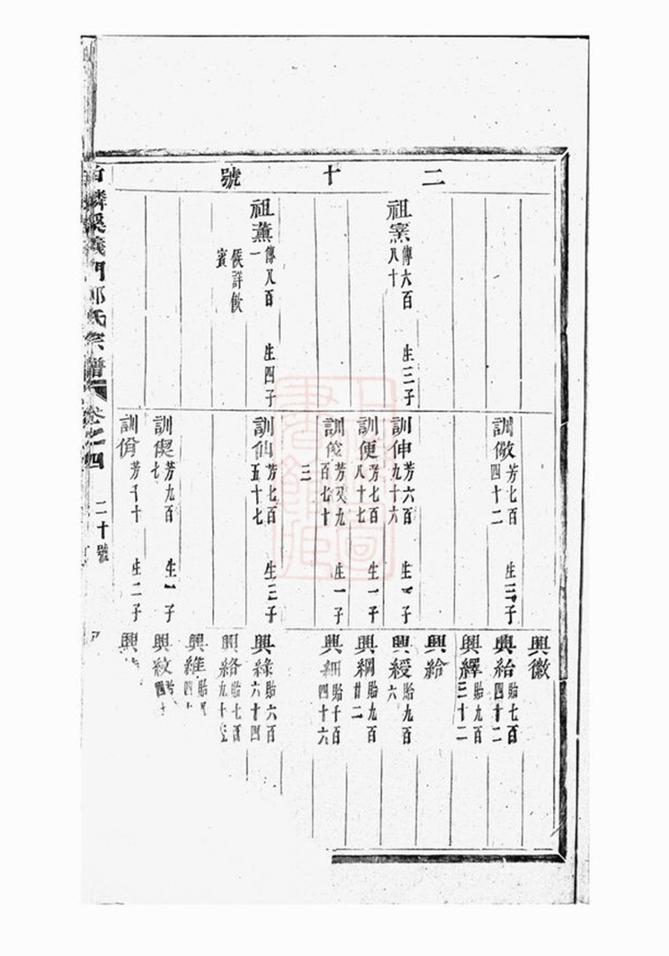 二十號
祖
傳六百
八十
生三子
祖薰
傳八百
一
生四子
訓儆
芳七百
四十二
訓伸
芳六百
九十六
生一子
訓便
芳七百
八十七
生一子
訓俊
芳又九
百七十
三
生一子
訓仙
芳七百
五十七
生三子
訓偰
芳九百
七
生一子
訓侑
芳千十
生二子
興徽
興紿
貽七百
四十二
興繹
貽九百
三十二
興給
興綬
貽九百
六
興綱
貽九百
廿二
興細
貽千百
四十六
興綠
貽六百
六十四
興絡
貽七百
興維
興紋
興
麟溪義門鄭氏宗譜
卷之四
二十號